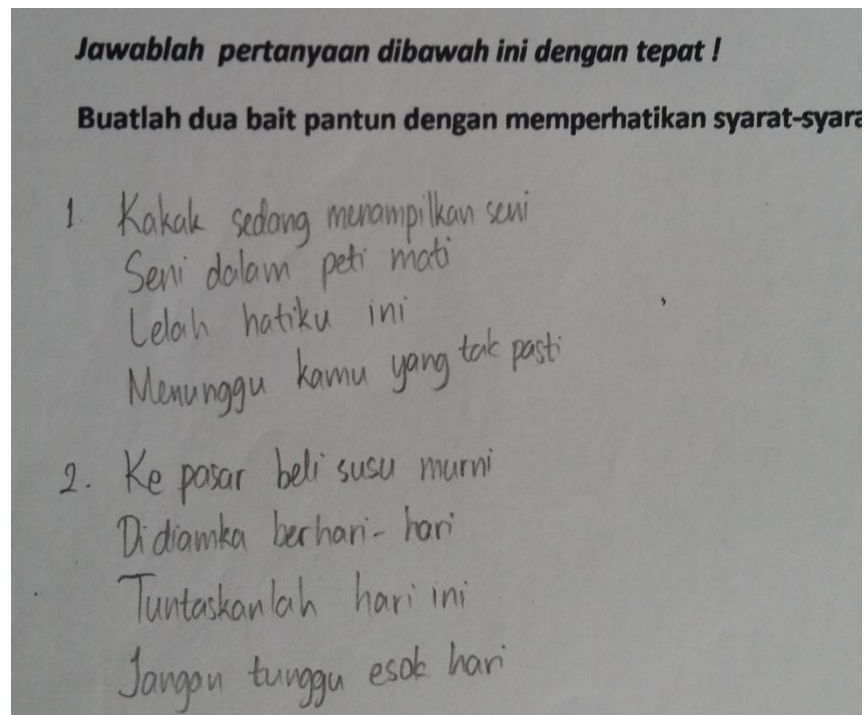 Jawablah pertanyaan dibawah ini dengan tepat !
Buatlah dua bait pantun dengan memperhatikan syarat-syara
1. Kakak sedang menampilkan seni
Seni dalam peti mati
Lelah hatiku ini
Menunggu kamu yang tak pasti
2. Ke pasar beli susu murni
Di diamka berhari-hari
Tuntaskanlah hari ini
Jangan tunggu esok hari